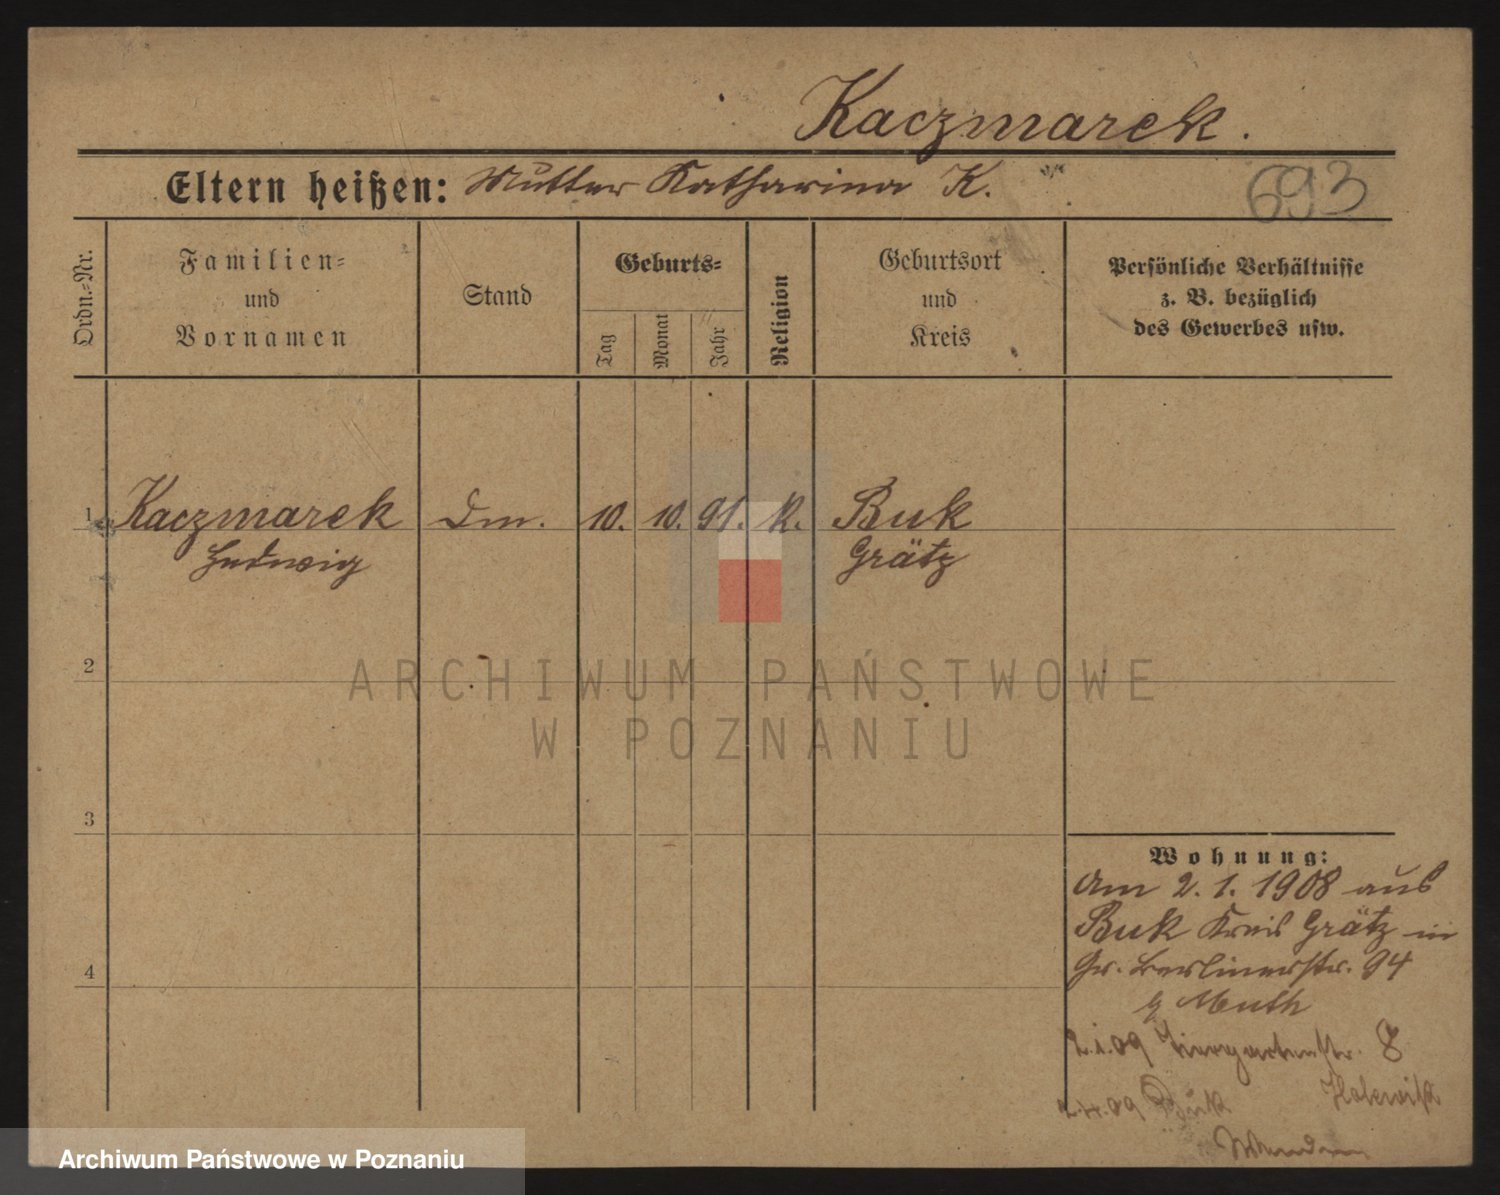 Kaczmarek.
Eltern heißen: Mutter Katharina K.
693
Ordn.-Nr.
Familien-
und
Vornamen
Stand
Geburts-
Tag
Monat
Jahr
Religion
Geburtsort
und
Kreis
Persönliche Verhältnisse
z. B. bezüglich
des Gewerbes usw.
1 Kaczmarek Dm. 10. 10. 91. K. Buk
Hedwig Grätz
2
ARCHIWUM PAŃSTWOWE
W POZNANIU
3
Wohnung:
Am 2. 1. 1908 aus
Buk Kreis Grätz in
Gr. Berlinerstr. 94
Muth
4
2.1.09 Tiergartenstr. 8
2.4.09 Buk
Archiwum Państwowe w Poznaniu